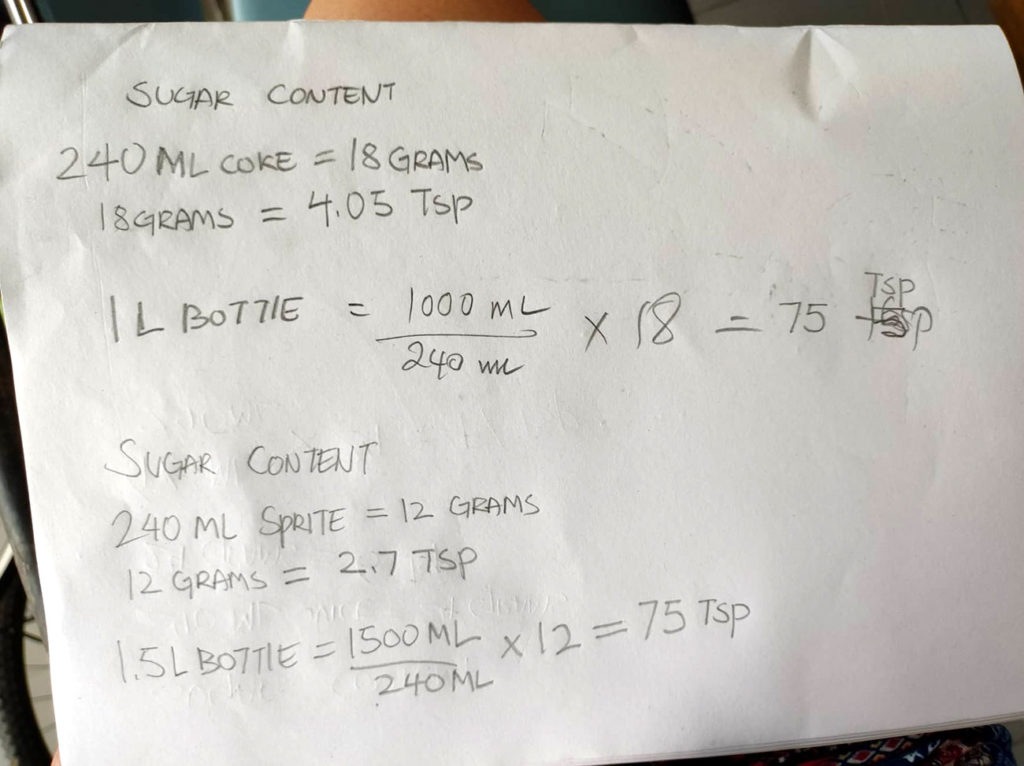 SUGAR CONTENT
240 ML COKE = 18 GRAMS
18 GRAMS = 4.05 Tsp
1 L BOTTLE = 1000 mL / 240 mL × 18 = 75 Tsp
SUGAR CONTENT
240 ML SPRITE = 12 GRAMS
12 GRAMS = 2.7 TSP
1.5 L BOTTLE = 1500 ML / 240 ML × 12 = 75 TSP